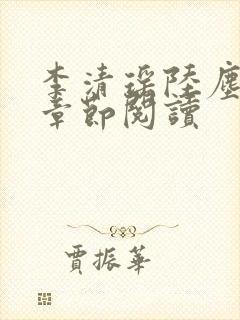 李清瑤陸塵
章節閱讀
賈振華